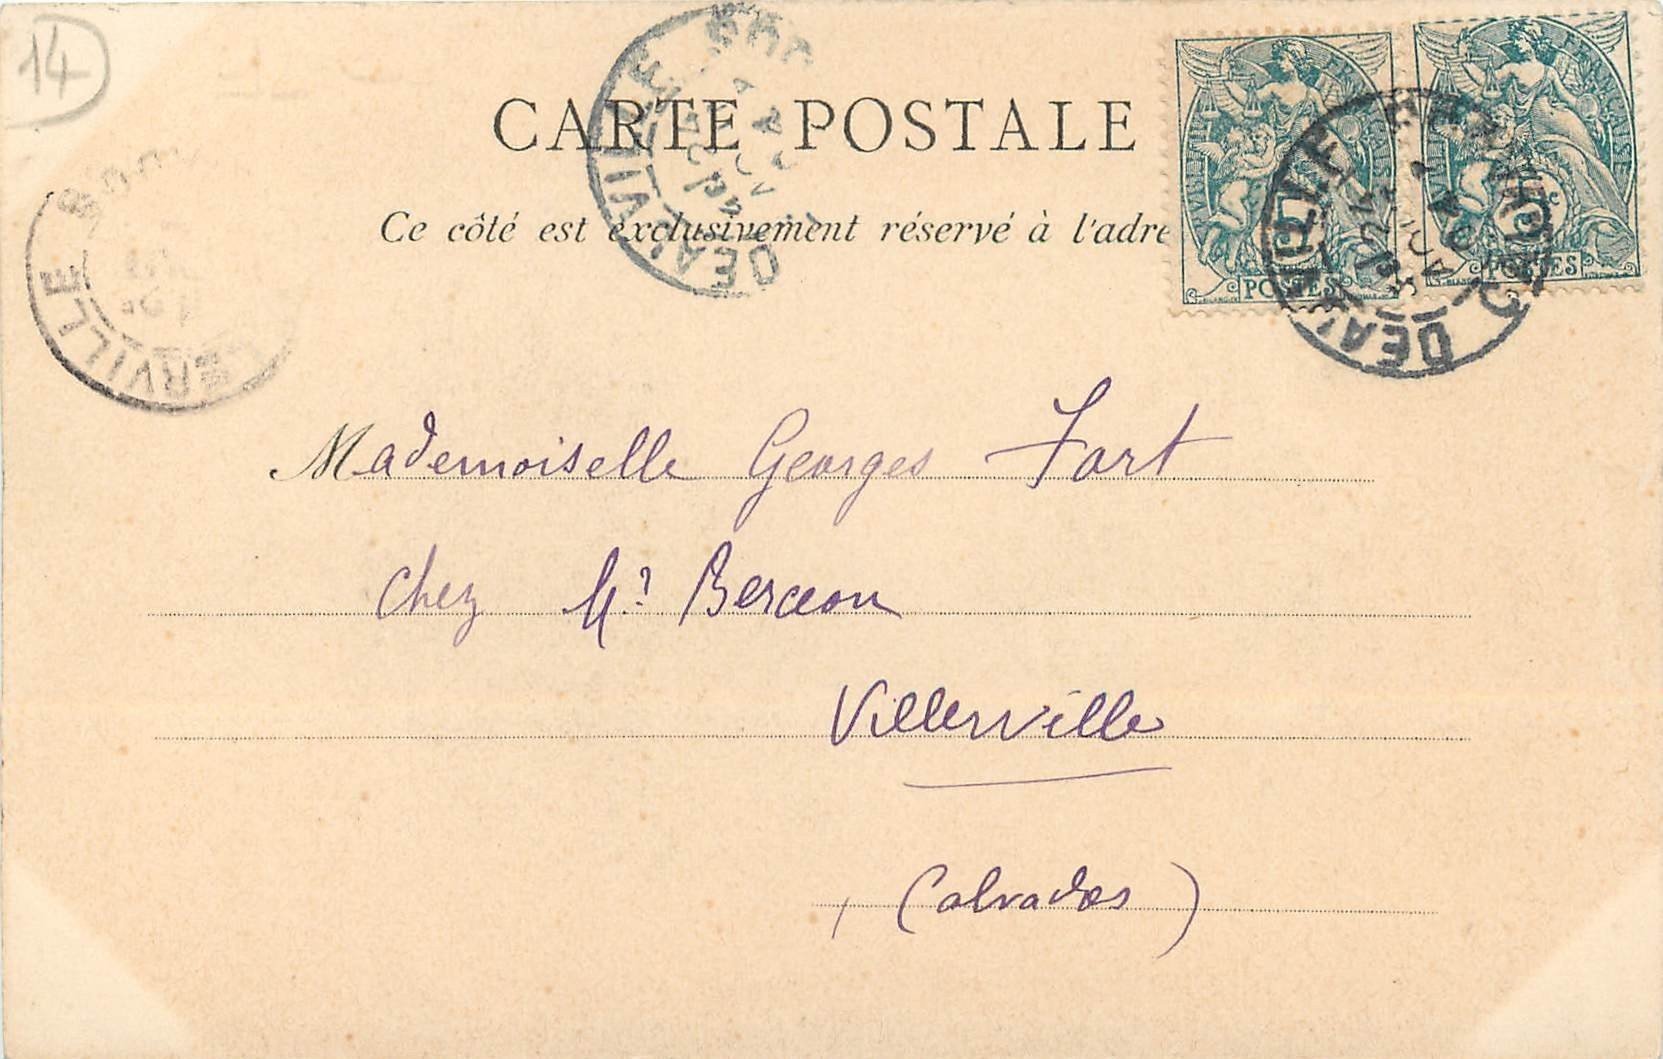 14
CARTE POSTALE
Ce côté est exclusivement réservé à l'adre
POSTES
POSTES
DEAUVILLE
DEAUVILLE
VILLERVILLE
Mademoiselle Georges Fort
chez Mr Berceon
Villerville
(Calvados)